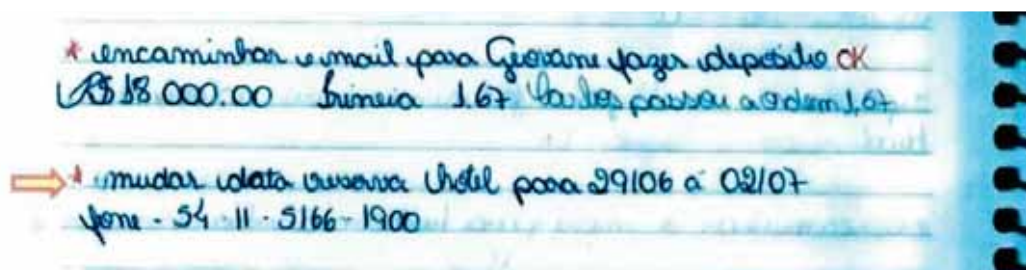 * encaminhar e-mail para Geovane fazer depósito OK
R$ 18 000.00 1.67 Carlos passou a ordem 1,67
* mudar data reserva hotel para 29/06 a 02/07
fone - 54 - 11 - 5166 - 1900